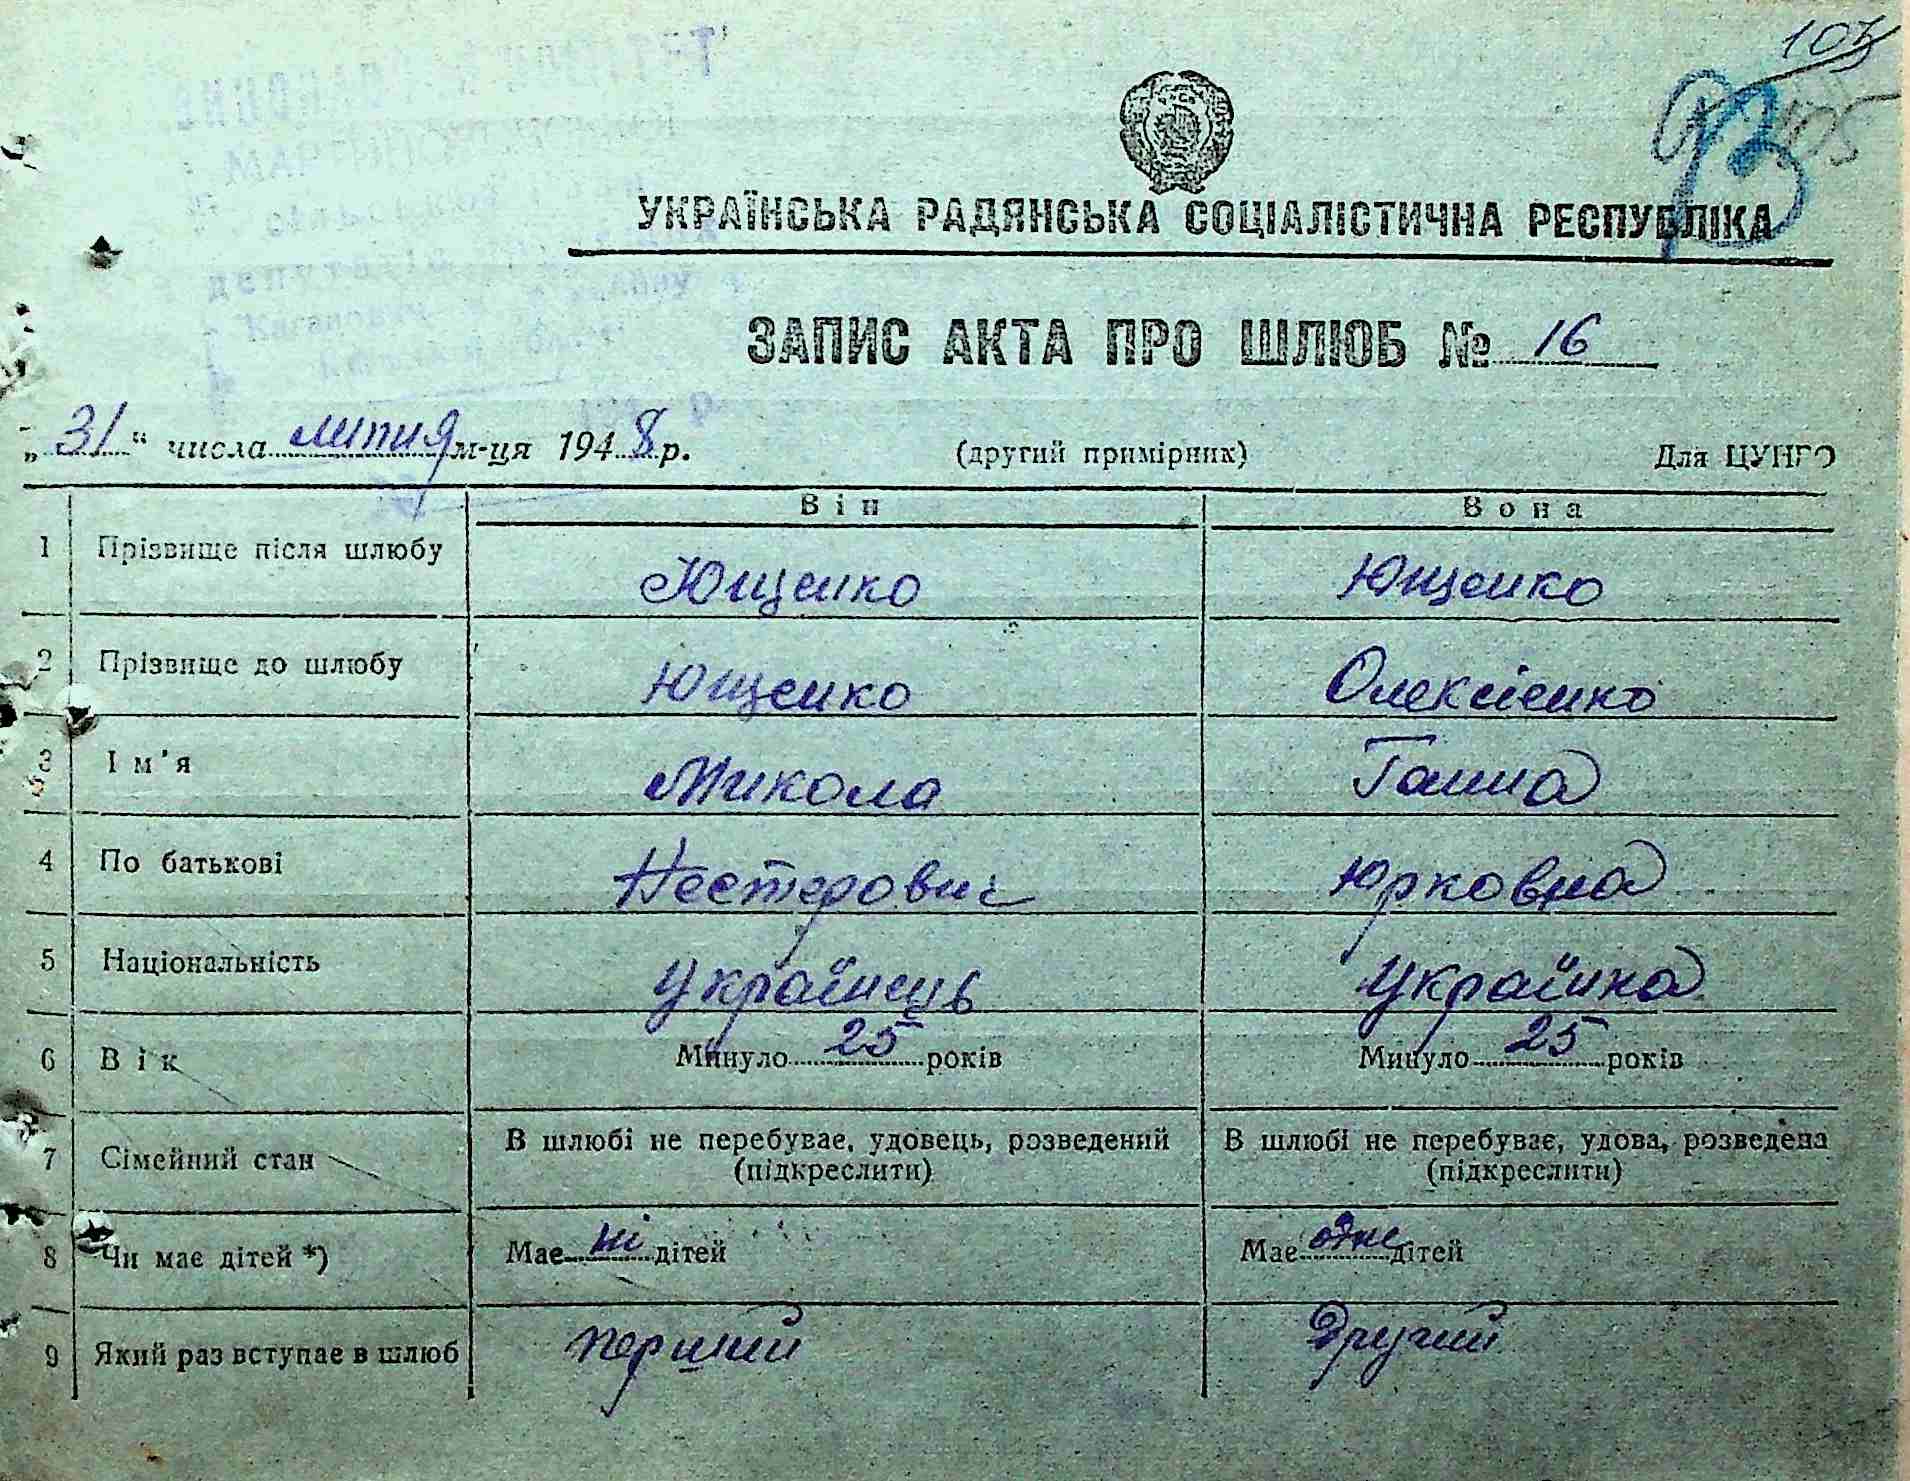 103
93 105
УКРАЇНСЬКА РАДЯНСЬКА СОЦІАЛІСТИЧНА РЕСПУБЛІКА
ЗАПИС АКТА ПРО ШЛЮБ № 16
„31“ числа липня м-ця 1948 р. (другий примірник) Для ЦУНГО
Він Вона
1 Прізвище після шлюбу Ющенко Ющенко
2 Прізвище до шлюбу Ющенко Олексієнко
3 Ім'я Микола Ганна
4 По батькові Нестерович Юрковна
5 Національність Українець Українка
6 Вік Минуло 25 років Минуло 25 років
7 Сімейний стан В шлюбі не перебуває, удовець, розведений (підкреслити) В шлюбі не перебуває, удова, розведена (підкреслити)
8 Чи має дітей *) Має ні дітей Має одне дітей
9 Який раз вступає в шлюб перший Другий